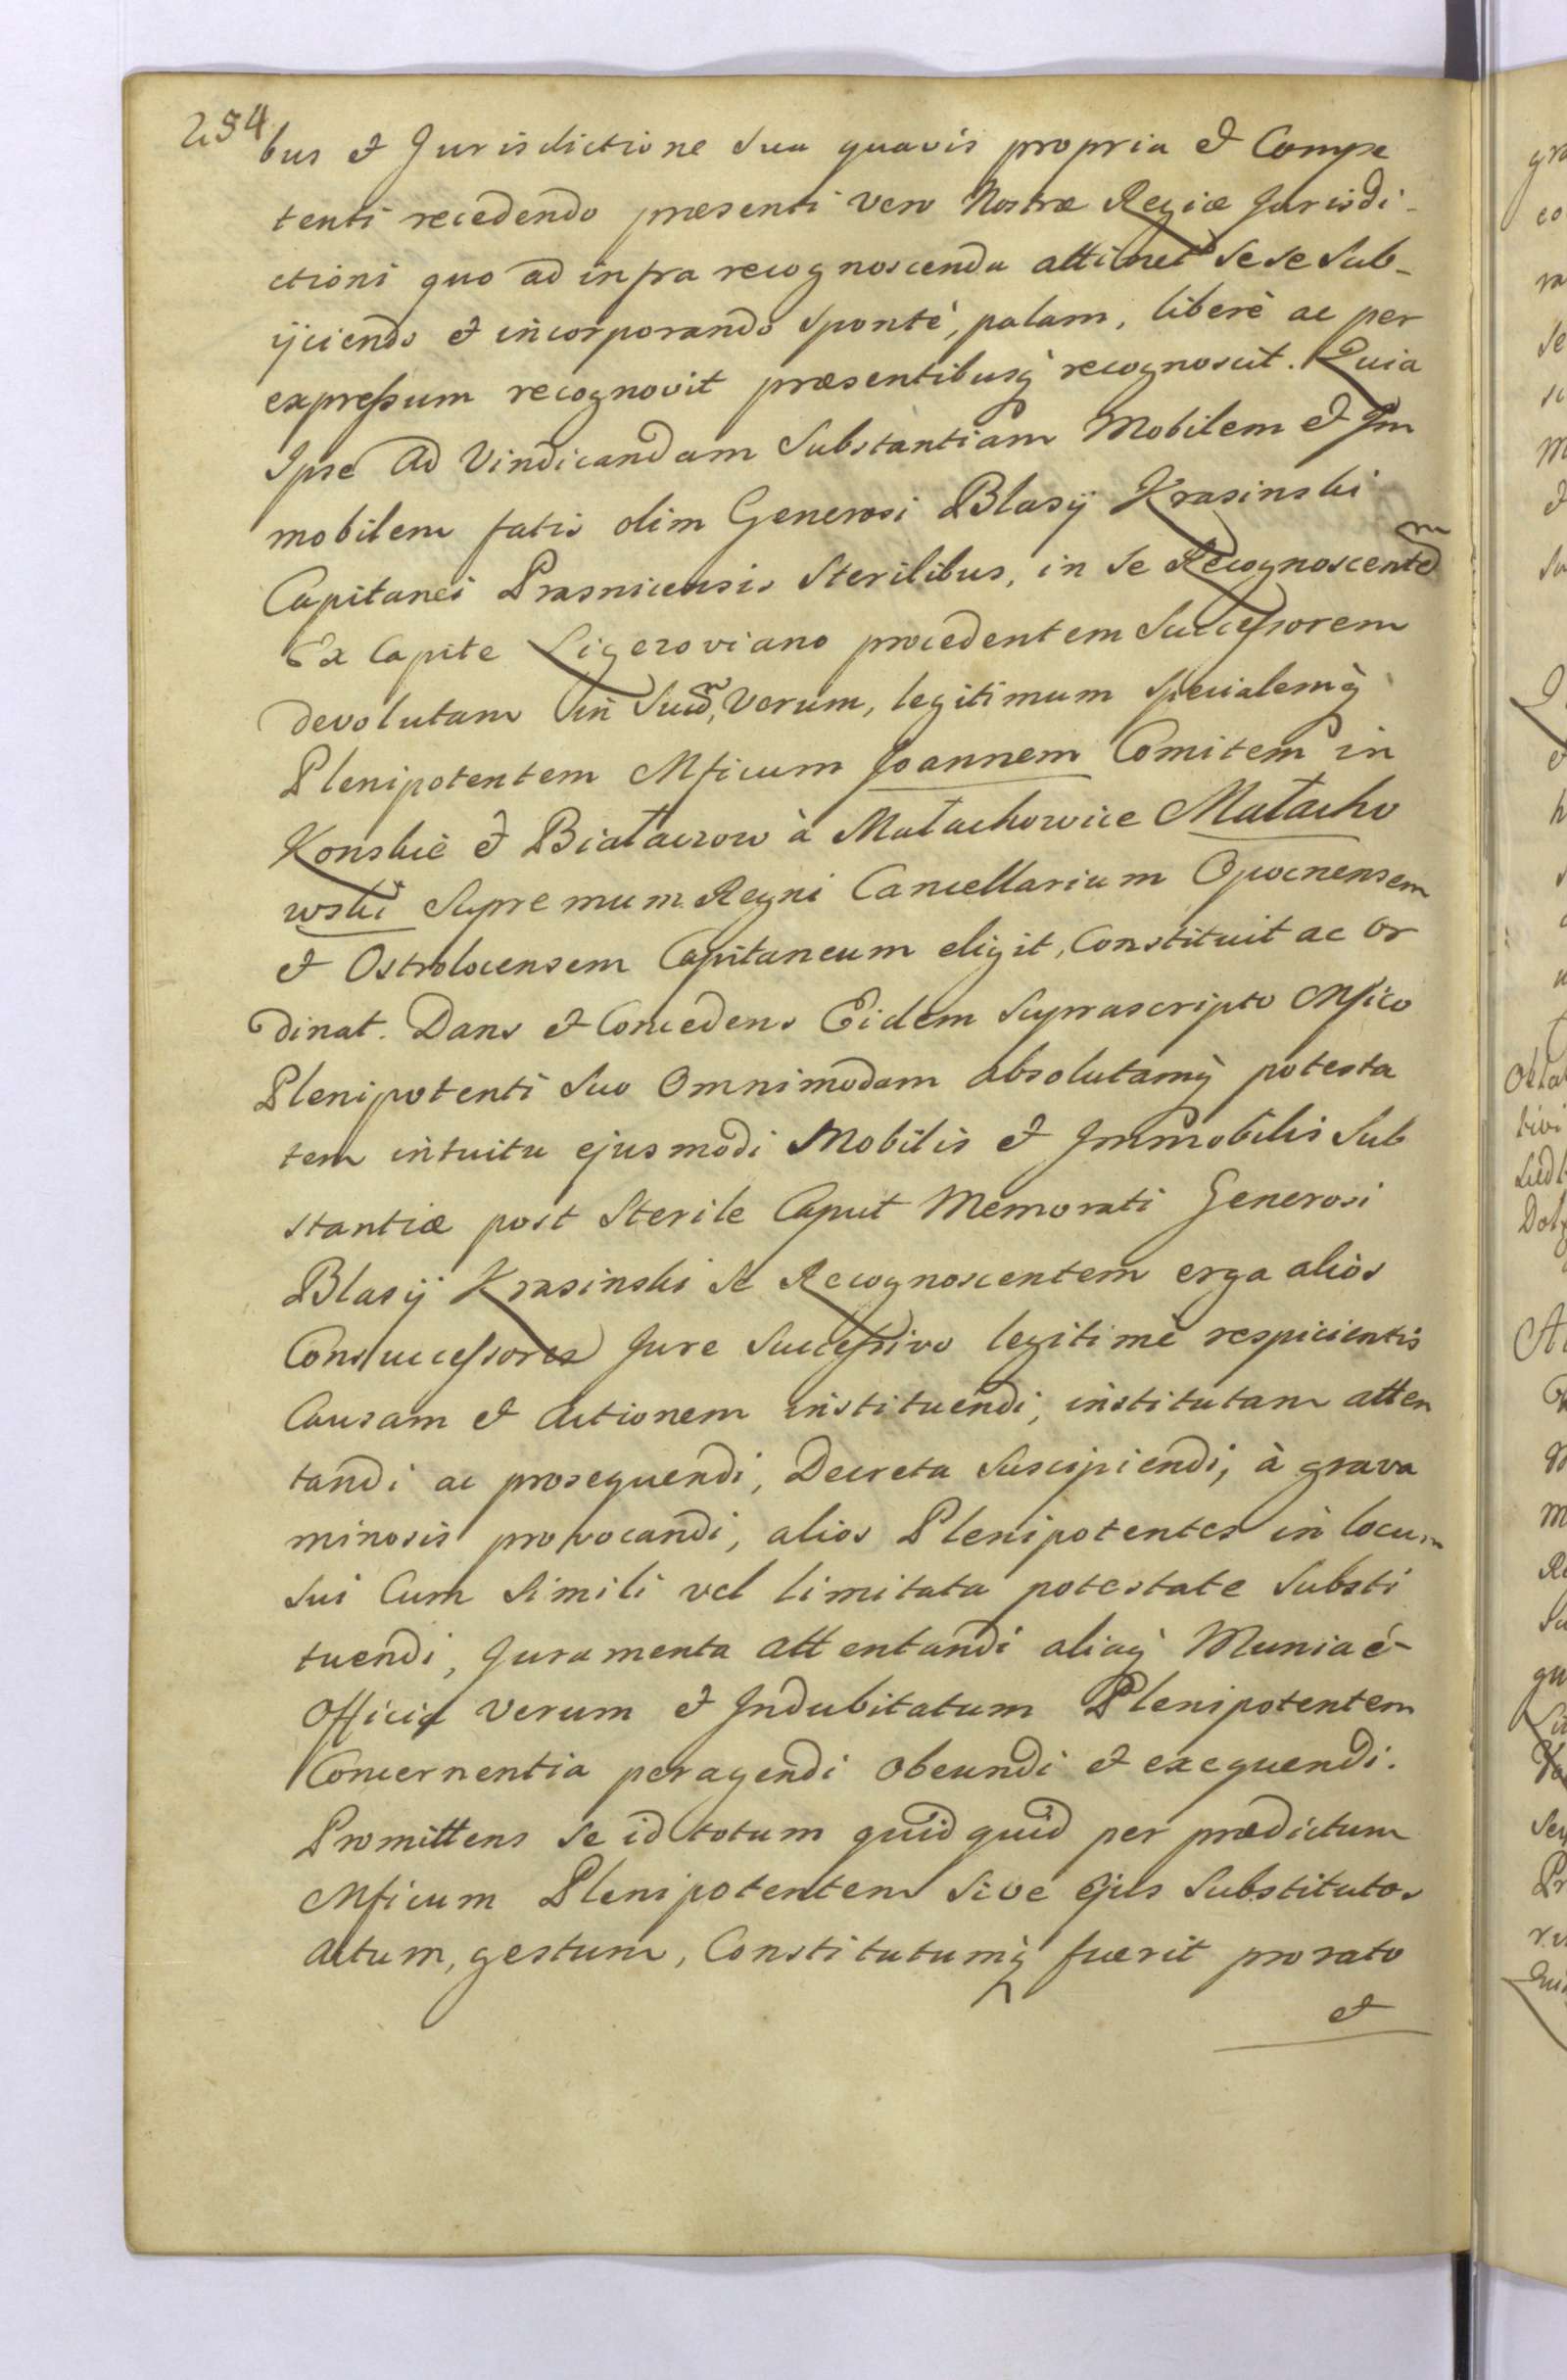 254
bus et Jurisdictione sua quavis propria et Compe
tenti recedendo præsenti vero Nostræ Regiæ Jurisdi-
ctioni quo ad infra recognoscenda attinet sese sub-
ijciendo et incorporando spontè, palam, liberè ac per
expressum recognovit præsentibusq recognoscit. Quia
Ipse ad Vindicandam Substantiam Mobilem et Im
mobilem fatis olim Generosi Blasij Krasinski
Capitanei Prasnicensis Sterilibus, in se Recognoscentem
Ex Capite Ligezoviano procedentem Successorem
devolutam in Suum, Verum, legitimum specialemq
Plenipotentem Mficum Joannem Comitem in
Konskie et Białaczow à Małachowice Małacho
wski Supremum Regni Cancellarium Opocnensem
et Ostrolocensem Capitaneum eligit, Constituit ac or
dinat. Dans et Concedens Eidem suprascripto Mfico
Plenipotenti suo Omnimodam absolutamq potesta
tem intuitu ejusmodi Mobilis et Immobilis Sub
stantiæ post Sterile Caput Memorati Generosi
Blasij Krasinski se Recognoscentem erga alios
Consuccessores Jure Successivo legitimè respicientis
Causam et Actionem instituendi, institutam atten
tandi ac prosequendi, Decreta suscipiendi, à grava
minosis provocandi, alios Plenipotentes in locum
sui Cum simili vel limitata potestate substi
tuendi, Juramenta attentandi aliaq Munia et
Officia Verum et Indubitatum Plenipotentem
Concernentia peragendi obeundi et exequendi.
Promittens se id totum quidquid per prædictum
Mficum Plenipotentem sive ejus Substitutos
actum, gestum, Constitutumq fuerit pro rato
et